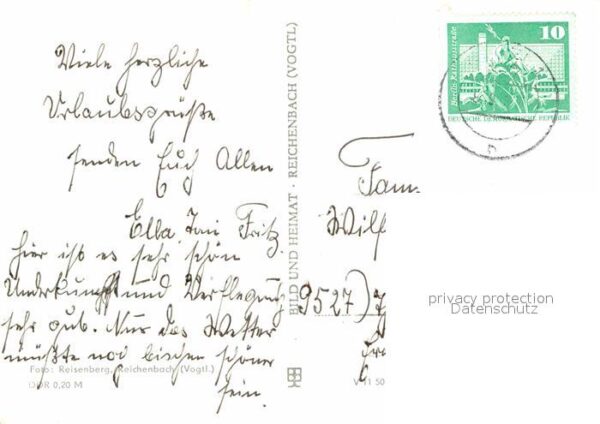 Viele herzliche
Urlaubsgrüße
senden Euch Allen
Ella Fritz.
hier ist es sehr schön
Underkunpft und Verflegung
sehr gut. Nur das Wetter
müßte noc bischen schöner
sein.
Foto: Reisenberg, Reichenbach (Vogtl.)
DDR 0,20 M
BILD UND HEIMAT · REICHENBACH (VOGTL)
V 11 50
10
Berlin Rathausstraße
DEUTSCHE DEMOKRATISCHE REPUBLIK
Fam
Wilf
9527)
privacy protection
Datenschutz